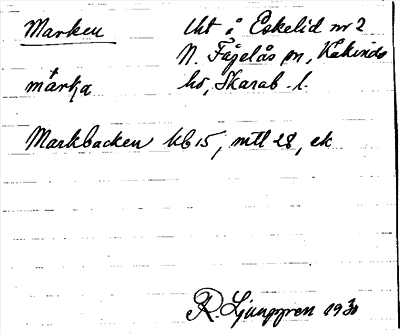 Marken
lht å Eskelid nr 2
N. Fågelås sn, Kåkinds
hd, Skarab. l.
márka
Markbacken kb 15, mtl 28, ek
R. Ljunggren 1930